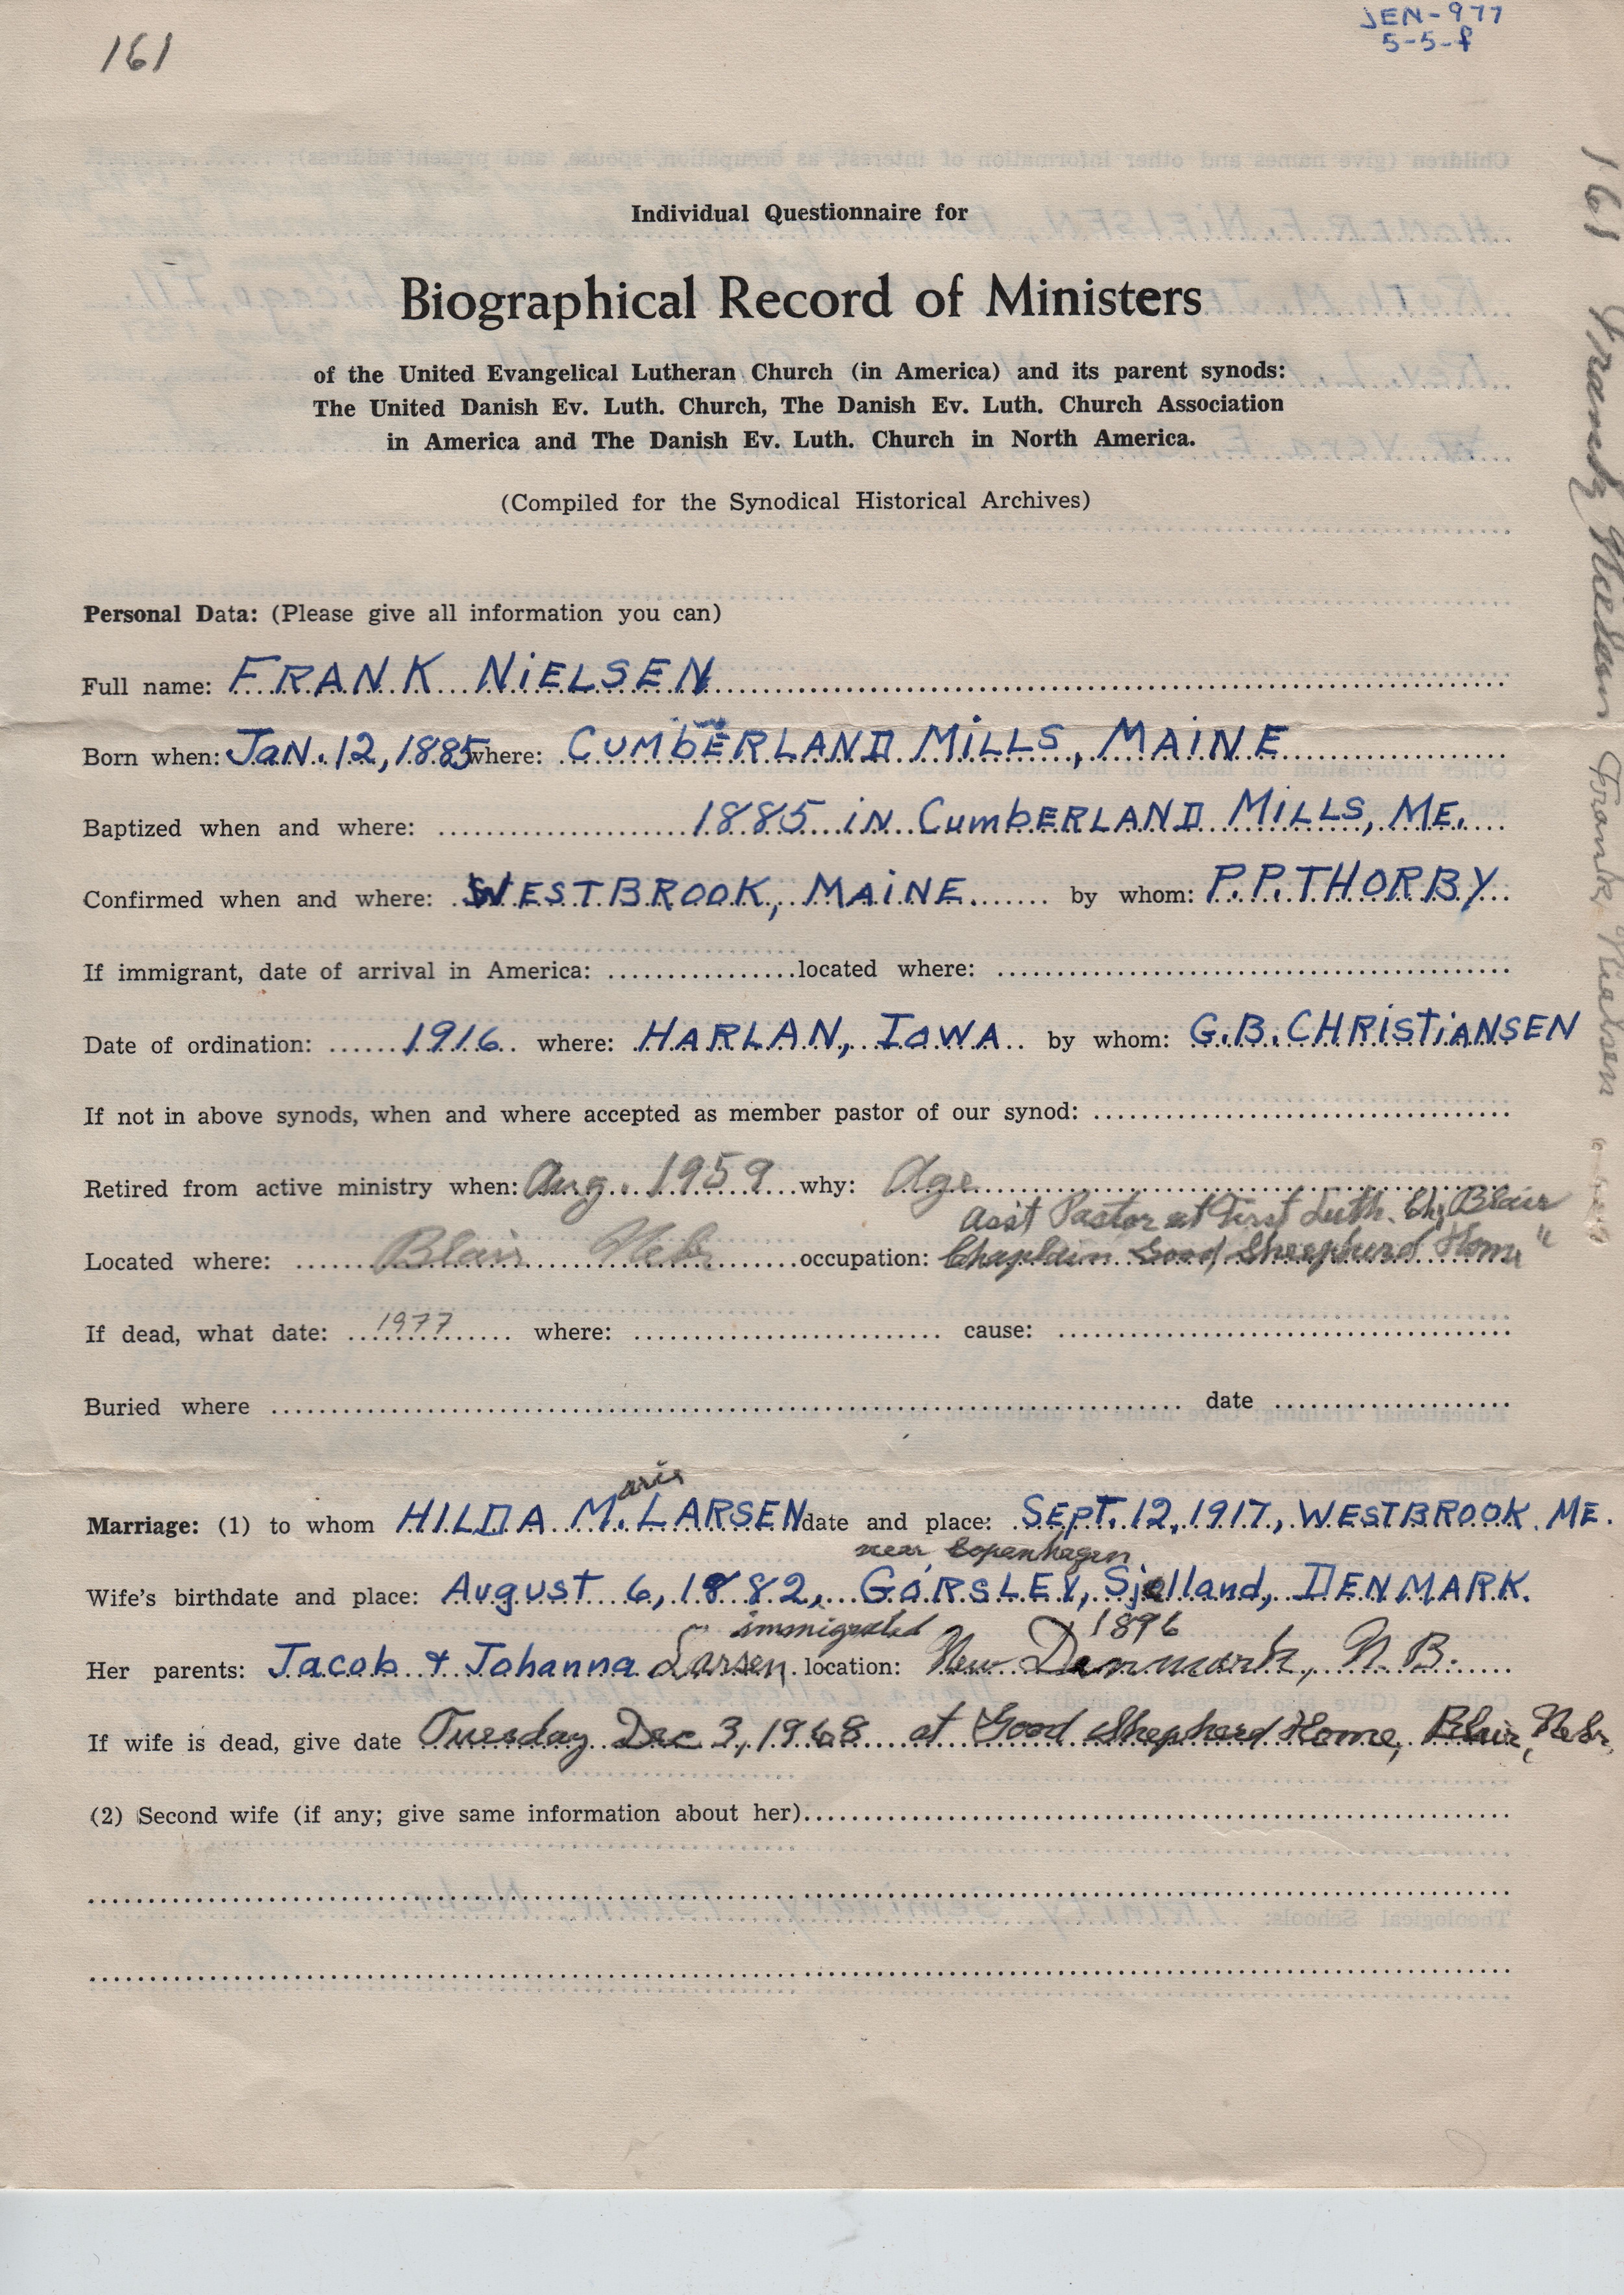 161
JEN-977
5-5-f
Individual Questionnaire for
Biographical Record of Ministers
of the United Evangelical Lutheran Church (in America) and its parent synods:
The United Danish Ev. Luth. Church, The Danish Ev. Luth. Church Association
in America and The Danish Ev. Luth. Church in North America.
(Compiled for the Synodical Historical Archives)
Personal Data: (Please give all information you can)
Full name: FRANK NIELSEN
Born when: JAN. 12, 1885 where: CUMBERLAND MILLS, MAINE
Baptized when and where: 1885 IN CUMBERLAND MILLS, ME.
Confirmed when and where: WESTBROOK, MAINE. by whom: P.P. THORBY
If immigrant, date of arrival in America: located where:
Date of ordination: 1916 where: HARLAN, IOWA by whom: G.B. CHRISTIANSEN
If not in above synods, when and where accepted as member pastor of our synod:
Retired from active ministry when: Aug. 1959 why: Age
Asst Pastor at First Luth. Ch, Blair
Located where: Blair Nebr occupation: Chaplain Good Sheepherd Home "
If dead, what date: 1977 where: cause:
Buried where date
arie
Marriage: (1) to whom HILDA M. LARSEN date and place: SEPT. 12, 1917, WESTBROOK ME.
near Copenhagen
Wife's birthdate and place: AUGUST 6, 1882, GORSLEV, Sjelland, DENMARK.
immigrated 1896
Her parents: Jacob & Johanna Larsen location: New Denmark, N.B.
If wife is dead, give date Tuesday Dec 3, 1968 at Good Shepherd Home, Blair, Nebr.
(2) Second wife (if any; give same information about her)
161 Frank Nielsen Frank Nielsen